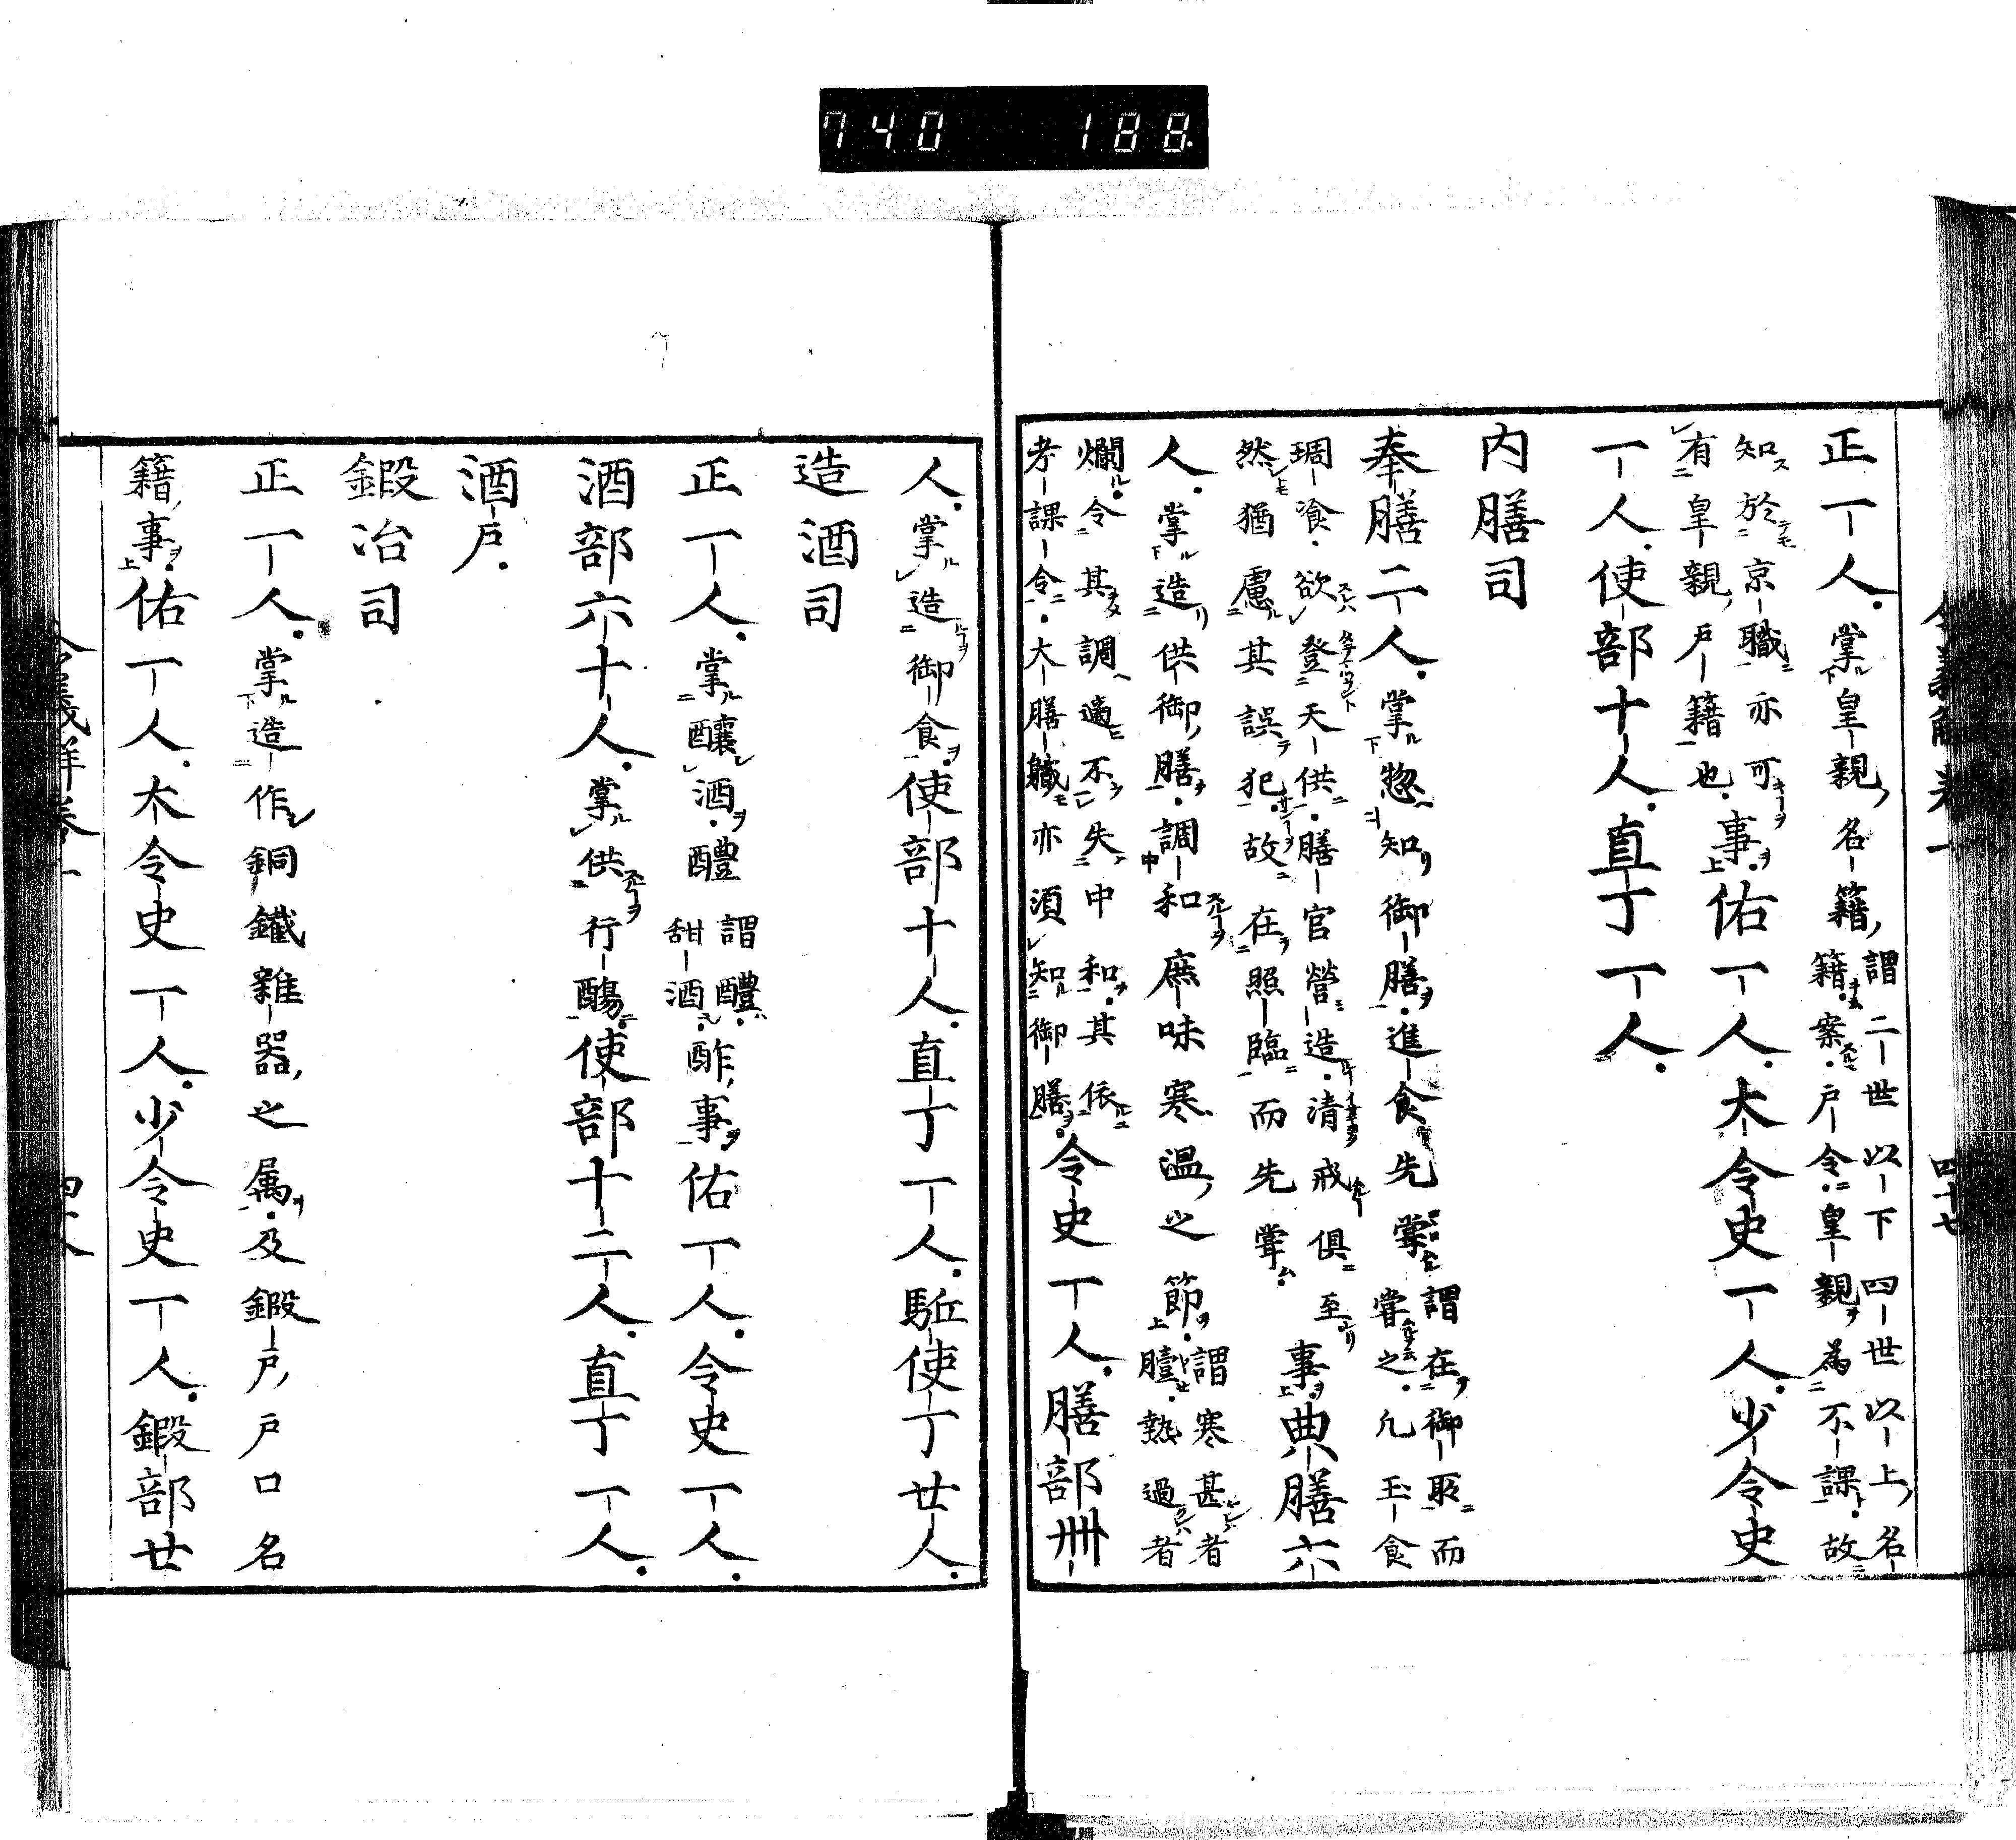 740 188
正一人。掌皇親名籍謂二世以下四世以上名
籍案。戶令。皇親為不課。故
知於京職亦可
有皇親戶籍也。事。佑一人。大令史一人。少令史
一人。使部十人。直丁一人。
内膳司
奉膳二人。掌惣知御膳。進食先甞謂在御所而
甞之。凡玉食
琱飡。欲登天供。膳官營造。清戒俱至
然猶慮其誤犯。故在照臨而先甞。事。典膳六
人。掌造供御膳。調和庶味寒温之節。謂寒甚者
膻。熱過者
爛。令其調適不失中和。其依
考課令。大膳職亦須知御膳。令史一人。膳部卌
人。掌造御食。使部十人。直丁一人。駈使丁廿人。
造酒司
正一人。掌釀酒。醴謂醴。
甜酒。酢事。佑一人。令史一人。
酒部六十人。掌供行觴。使部十二人。直丁一人。
酒戶。
鍛冶司
正一人。掌造作銅鐵雜器之属。及鍛戶戶口名
籍事。佑一人。大令史一人。少令史一人。鍛部廿